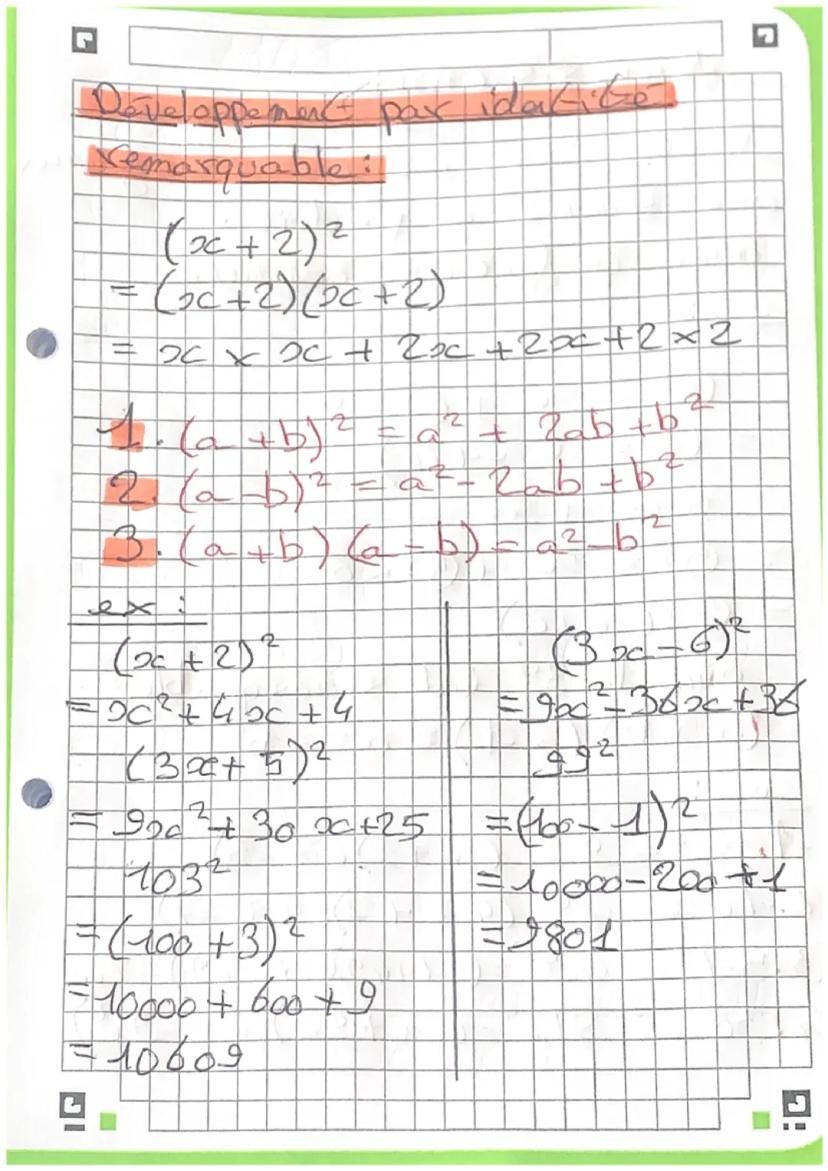 Développement par idatité
remarquable :
(x + 2)²
= (x+2)(x+2)
= x × x + 2x + 2x + 2 × 2
1. (a + b)² = a² + 2ab + b²
2. (a - b)² = a² - 2ab + b²
3. (a + b) (a - b) = a² - b²
ex :
(x + 2)²
= x² + 4x + 4
(3x + 5)²
= 9x² + 30x + 25
103²
= (100 + 3)²
= 10000 + 600 + 9
= 10609
(3x - 6)²
= 9x² - 36x + 36
99²
= (100 - 1)²
= 10000 - 200 + 1
= 9801